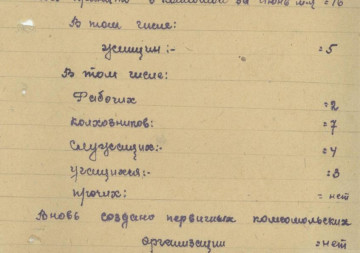 в комсомол за июнь м-ц =16
В том числе:
женщин:- =5
В том числе:
Рабочих =2
Колховников: =7
Служащих:- =4
Учащихся:- =3
прочих: = нет
Вновь создано первичных комсомольских
организации =нет